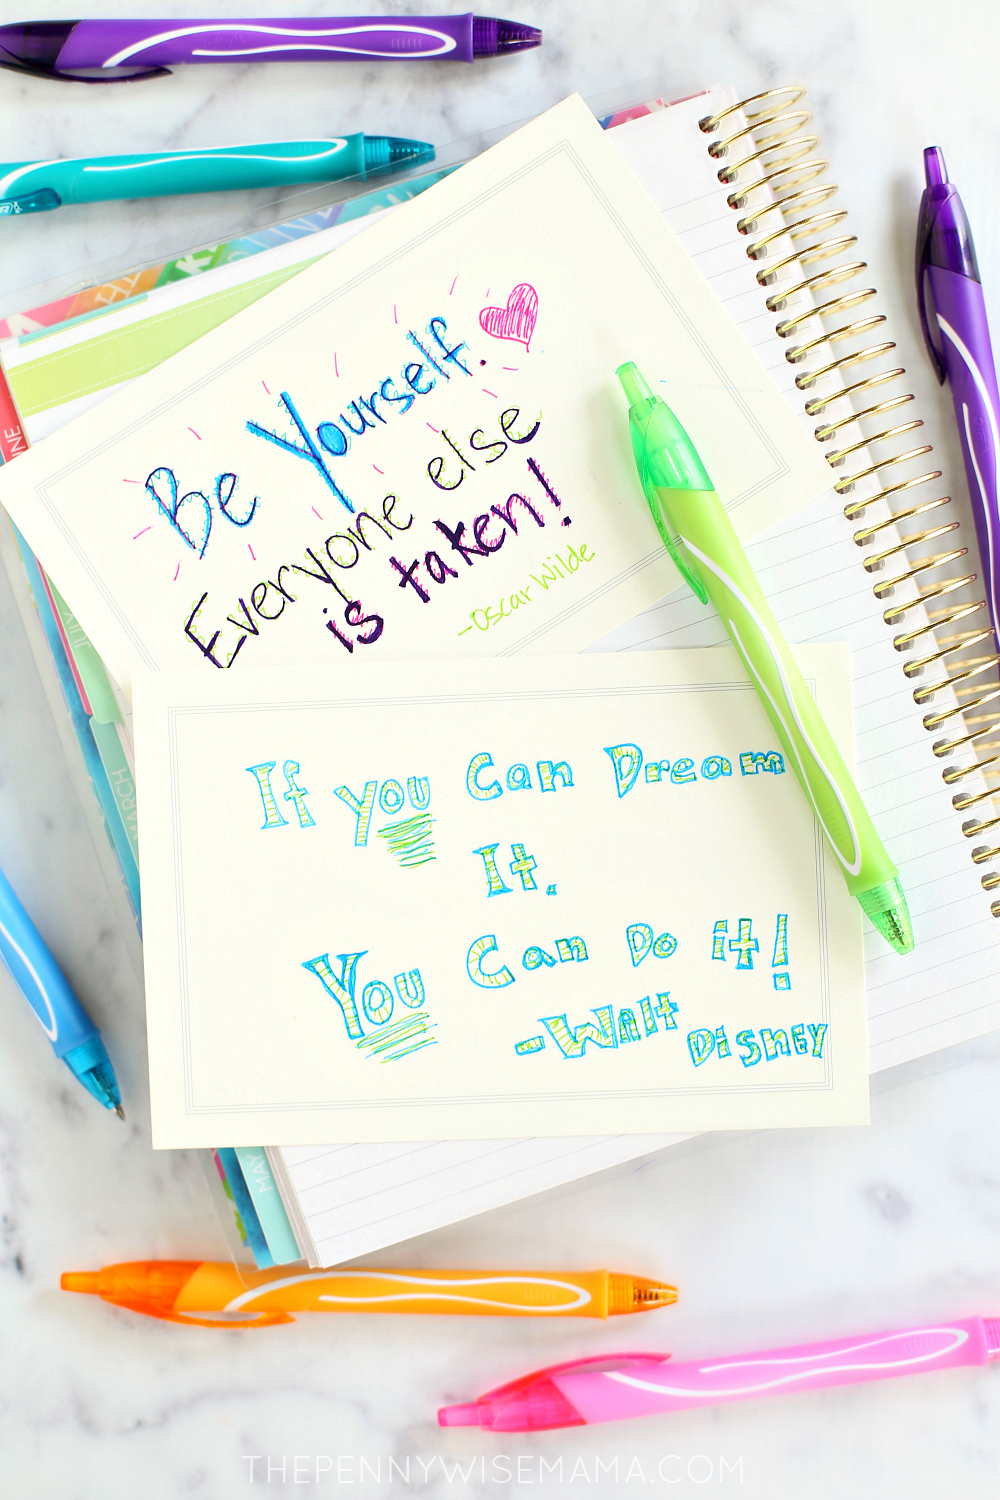 Be Yourself.
Everyone else
is taken!
-Oscar Wilde
If you Can Dream
It.
You Can Do it!
-Walt
DiSNEY
JULY
MARCH
MAY
THEPENNYWISEMAMA.COM